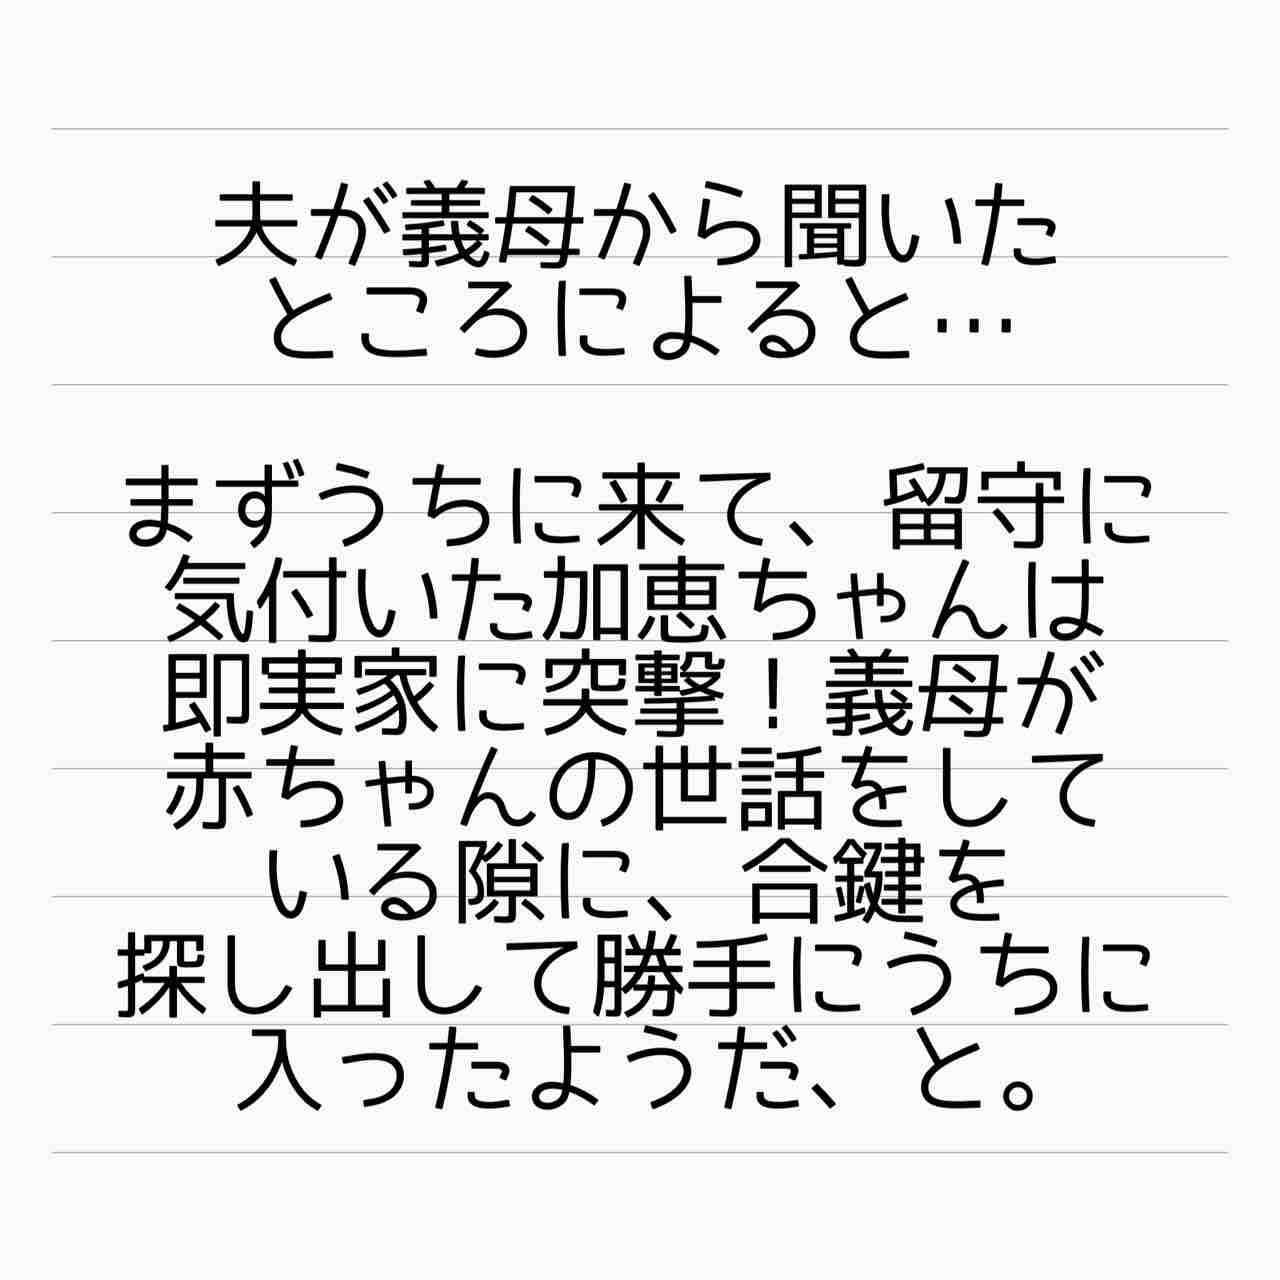 夫が義母から聞いた
ところによると…
まずうちに来て、留守に
気付いた加恵ちゃんは
即実家に突撃！義母が
赤ちゃんの世話をして
いる隙に、合鍵を
探し出して勝手にうちに
入ったようだ、と。